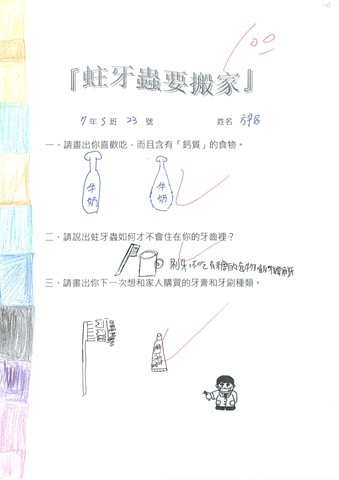 100
『蛀牙蟲要搬家』
7年5班 23 號 姓名
一、請畫出你喜歡吃,而且含有「鈣質」的食物。
牛奶 牛奶
二、請說出蛀牙蟲如何才不會住在你的牙齒裡?
刷牙 不吃有糖的食物
三、請畫出你下一次想和家人購買的牙膏和牙刷種類。